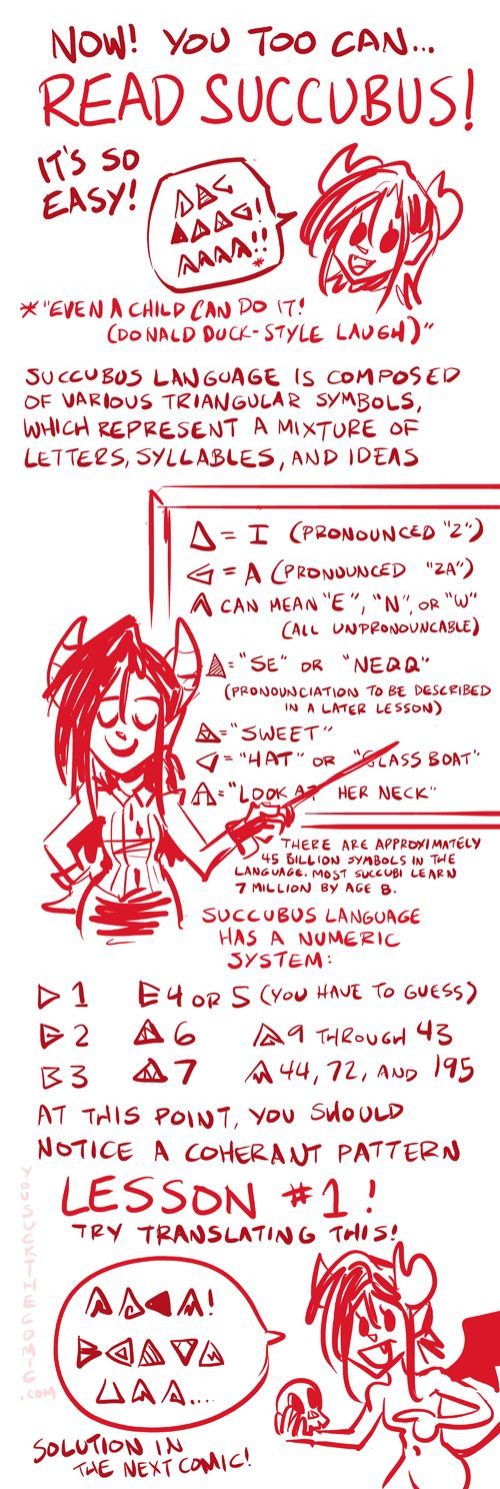 NOW! YOU TOO CAN...
READ SUCCUBUS!
IT'S SO
EASY!
*"EVEN A CHILD CAN DO IT!
(DONALD DUCK-STYLE LAUGH)"
SUCCUBUS LANGUAGE IS COMPOSED
OF VARIOUS TRIANGULAR SYMBOLS,
WHICH REPRESENT A MIXTURE OF
LETTERS, SYLLABLES, AND IDEAS
= I (PRONOUNCED "Z")
= A (PRONOUNCED "ZA")
CAN MEAN "E", "N", OR "W"
(ALL UNPRONOUNCABLE)
= "SE" OR "NEQQ"
(PRONOUNCIATION TO BE DESCRIBED
IN A LATER LESSON)
= "SWEET"
= "HAT" OR "GLASS BOAT"
= "LOOK AT HER NECK"
THERE ARE APPROXIMATELY
45 BILLION SYMBOLS IN THE
LANGUAGE. MOST SUCCUBI LEARN
7 MILLION BY AGE 8.
SUCCUBUS LANGUAGE
HAS A NUMERIC
SYSTEM:
1 4 OR 5 (YOU HAVE TO GUESS)
2 6 9 THROUGH 43
3 7 44, 72, AND 195
AT THIS POINT, YOU SHOULD
NOTICE A COHERANT PATTERN
YOUSUCKTHECOMIC.COM
LESSON #1!
TRY TRANSLATING THIS!
SOLUTION IN
THE NEXT COMIC!